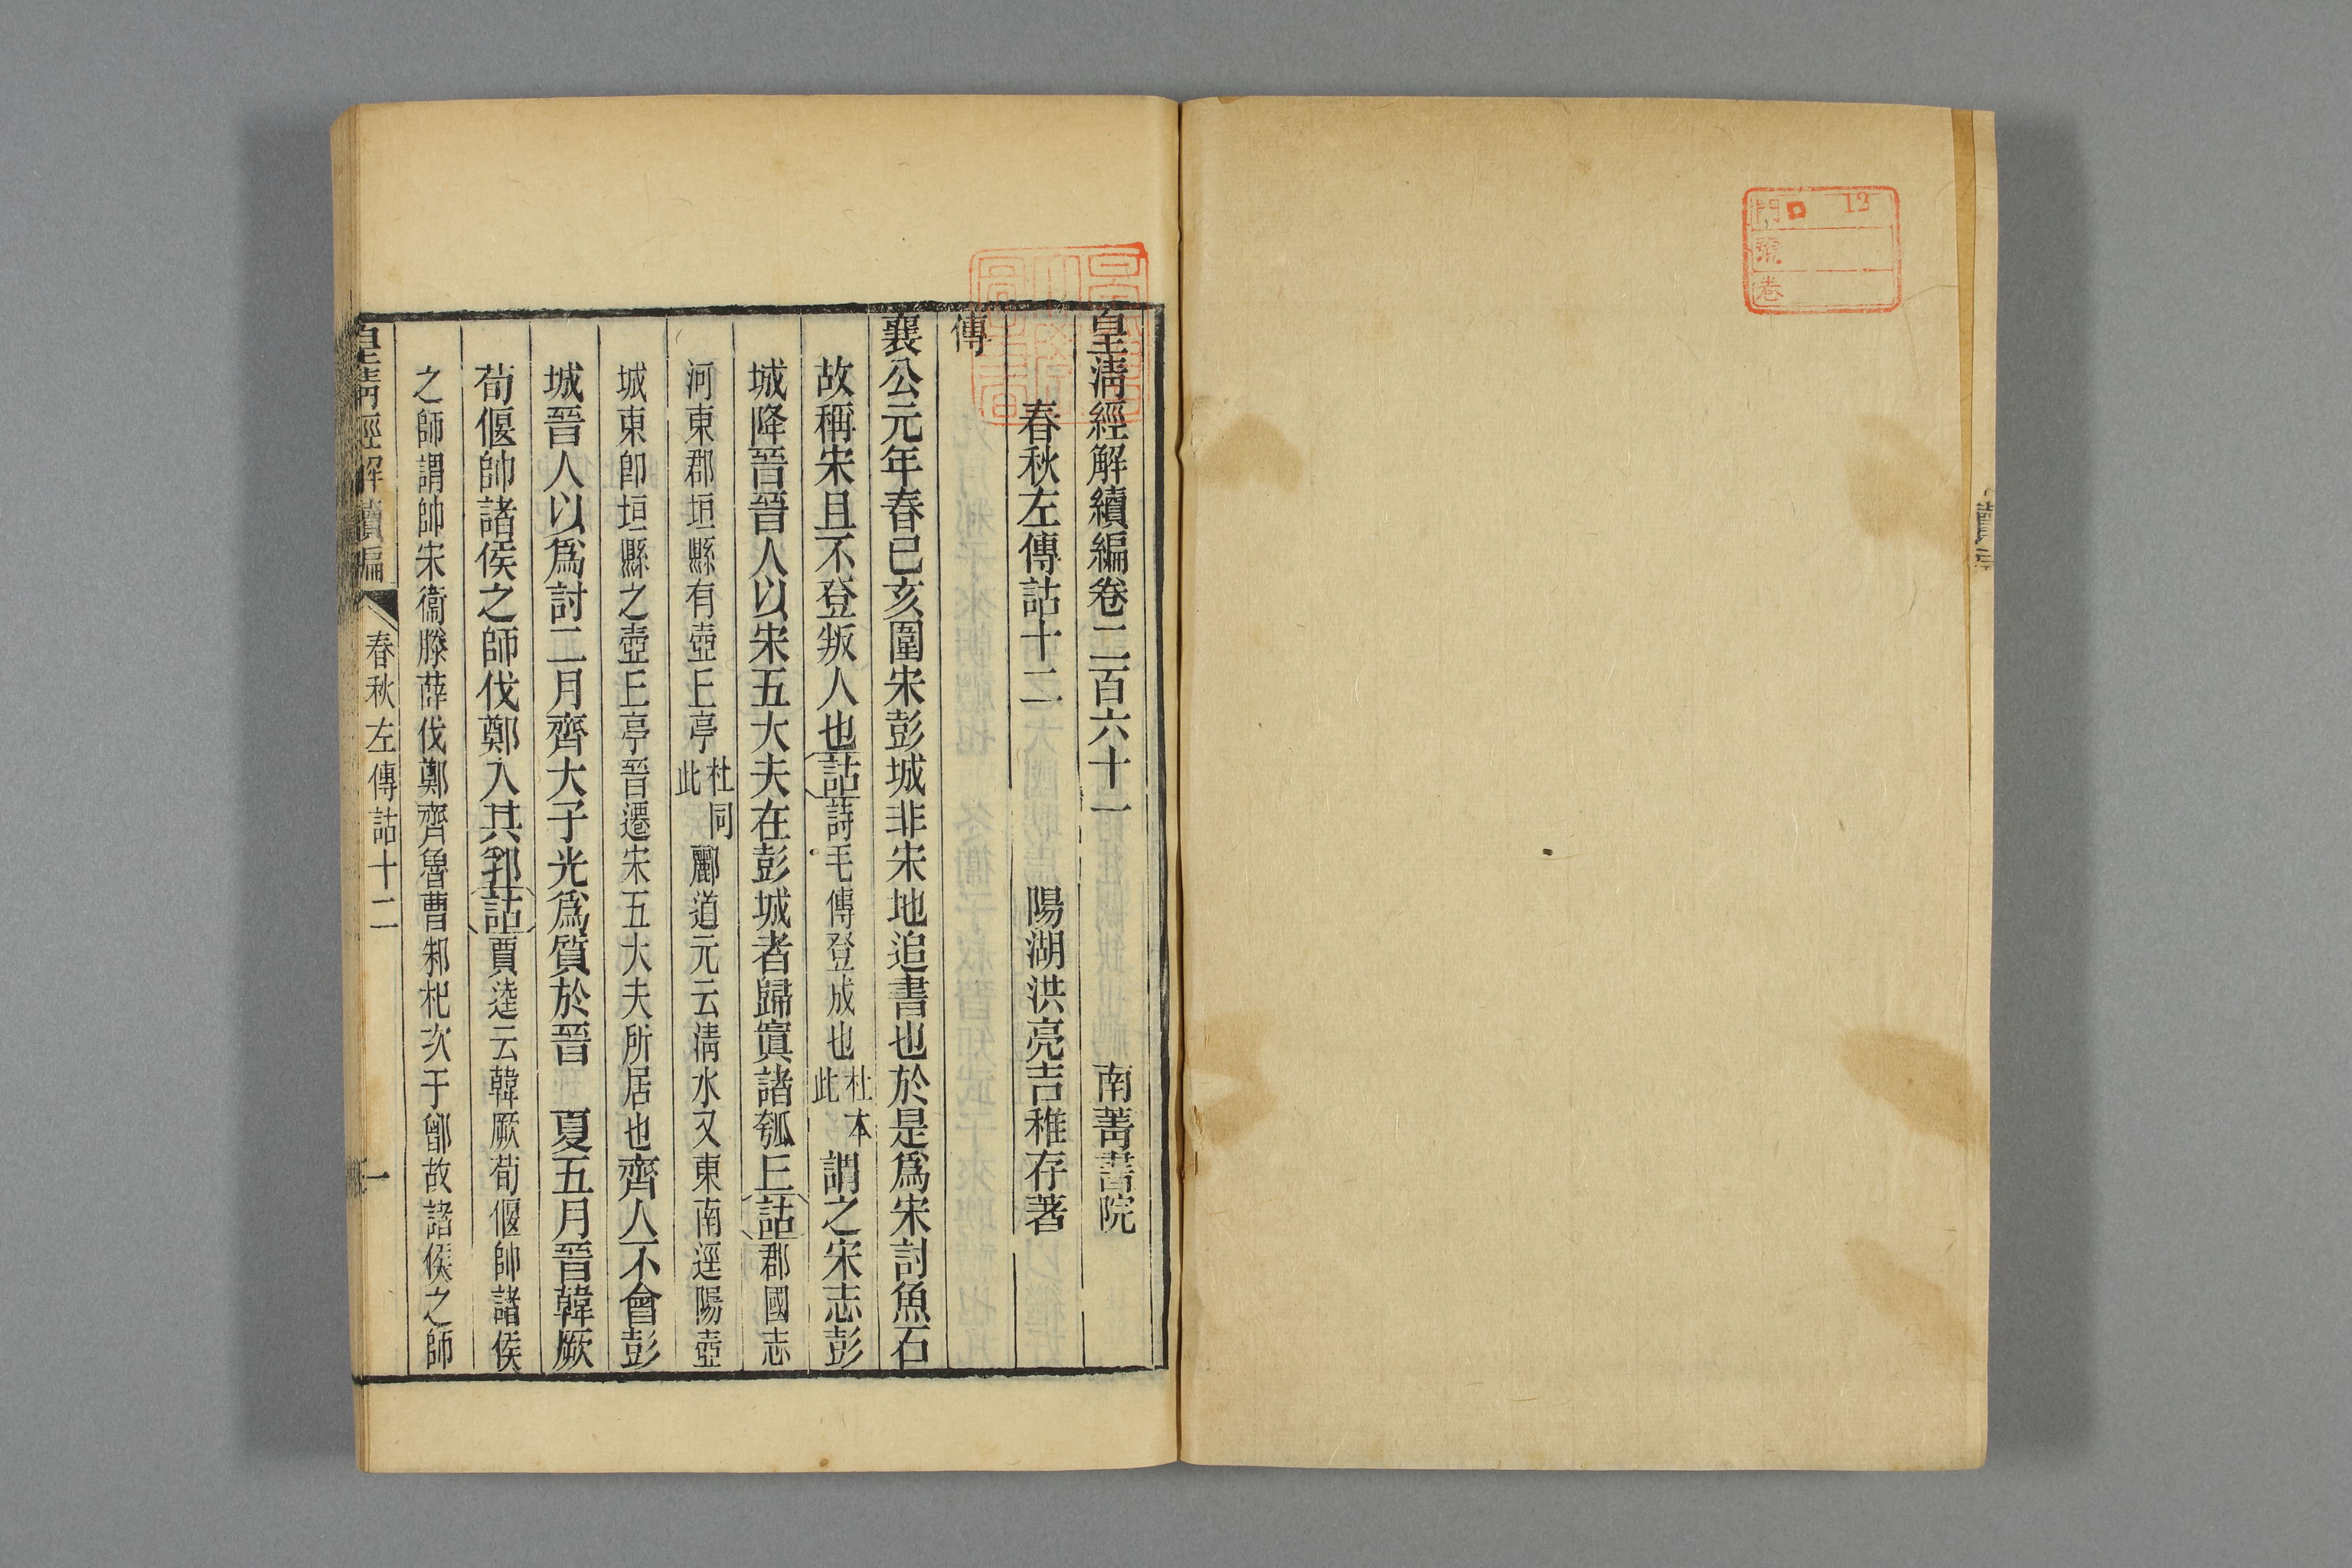 門 12
號
卷
皇清經解續編卷二百六十一 南菁書院
春秋左傳詁十二 陽湖洪亮吉稚存著
傳
襄公元年春己亥圍宋彭城非宋地追書也於是爲宋討魚石
故稱宋且不登叛人也詁詩毛傳登成也杜本此謂之宋志彭
城降晉晉人以宋五大夫在彭城者歸寘諸瓠𠀉詁郡國志
河東郡垣縣有壺𠀉亭杜同此酈道元云淸水又東南逕陽壺
城東卽垣縣之壺𠀉亭晉遷宋五大夫所居也齊人不會彭
城晉人以爲討二月齊大子光爲質於晉 夏五月晉韓厥
荀偃帥諸侯之師伐鄭入其郛詁賈逵云韓厥荀偃帥諸侯
之師謂帥宋衞滕薛伐鄭齊魯曹邾杞次于鄫故諸侯之師
皇淸經解續編 春秋左傳詁十二 一